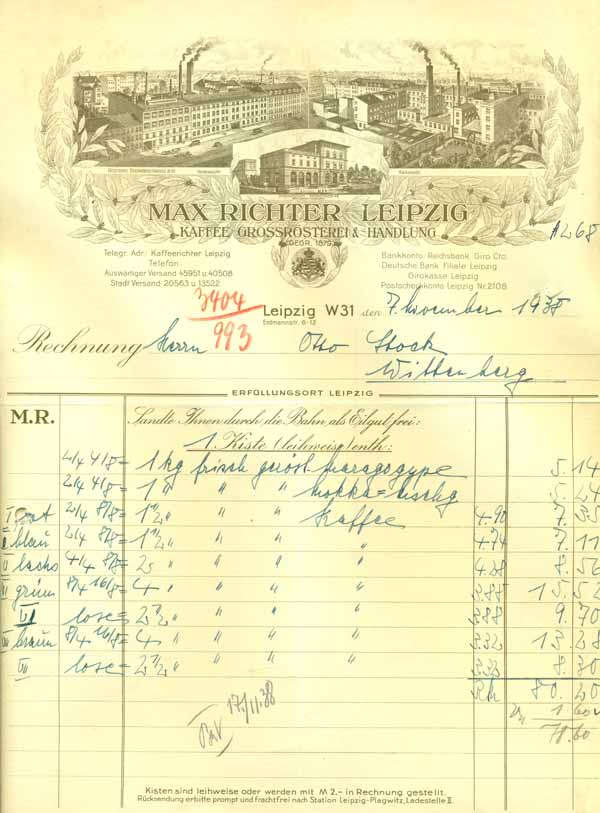 MAX RICHTER LEIPZIG
KAFFEE GROSSRÖSTEREI & HANDLUNG
GEGR. 1879
A268
Telegr. Adr.: Kaffeerichter Leipzig
Telefon:
Auswärtiger Versand 45951 u. 40508
Stadt Versand 20563 u. 13522
Bankkonto: Reichsbank Giro Cto.
Deutsche Bank Filiale Leipzig
Girokasse Leipzig
Postscheckkonto Leipzig Nr. 2108
3404
993
Leipzig W31 den 7. November 1938
Erdmannstr. 8-12
Rechnung Herrn Otto Stock
Wittenberg
ERFÜLLUNGSORT LEIPZIG
M.R. Sandte Ihnen durch die Bahn als Eilgut frei:
1 Kiste (leihweise) enth:
4/4 4/8 = 1 kg frisch geröst. Maragogype 5.14
2/4 4/8 = 1 " " " Mokka=Mischg 5.24
I rot 2/4 8/8 = 1 1/2 " " " Kaffee 4.90 7.35
II blau 2/4 8/8 = 1 1/2 " " " " 4.74 7.11
lachs 4/4 8/8 = 2 " " " " 4.28 8.56
grün 8/4 16/8 = 4 " " " " 3.88 15.52
lose = 2 1/2 " " " " 3.88 9.70
braun 8/4 16/8 = 4 " " " " 3.32 13.28
lose = 2 1/2 " " " " 3.32 8.30
RM 80.20
1.60
78.60
17/11.38
Kisten sind leihweise oder werden mit M 2.- in Rechnung gestellt.
Rücksendung erbitte prompt und frachtfrei nach Station Leipzig-Plagwitz, Ladestelle II.